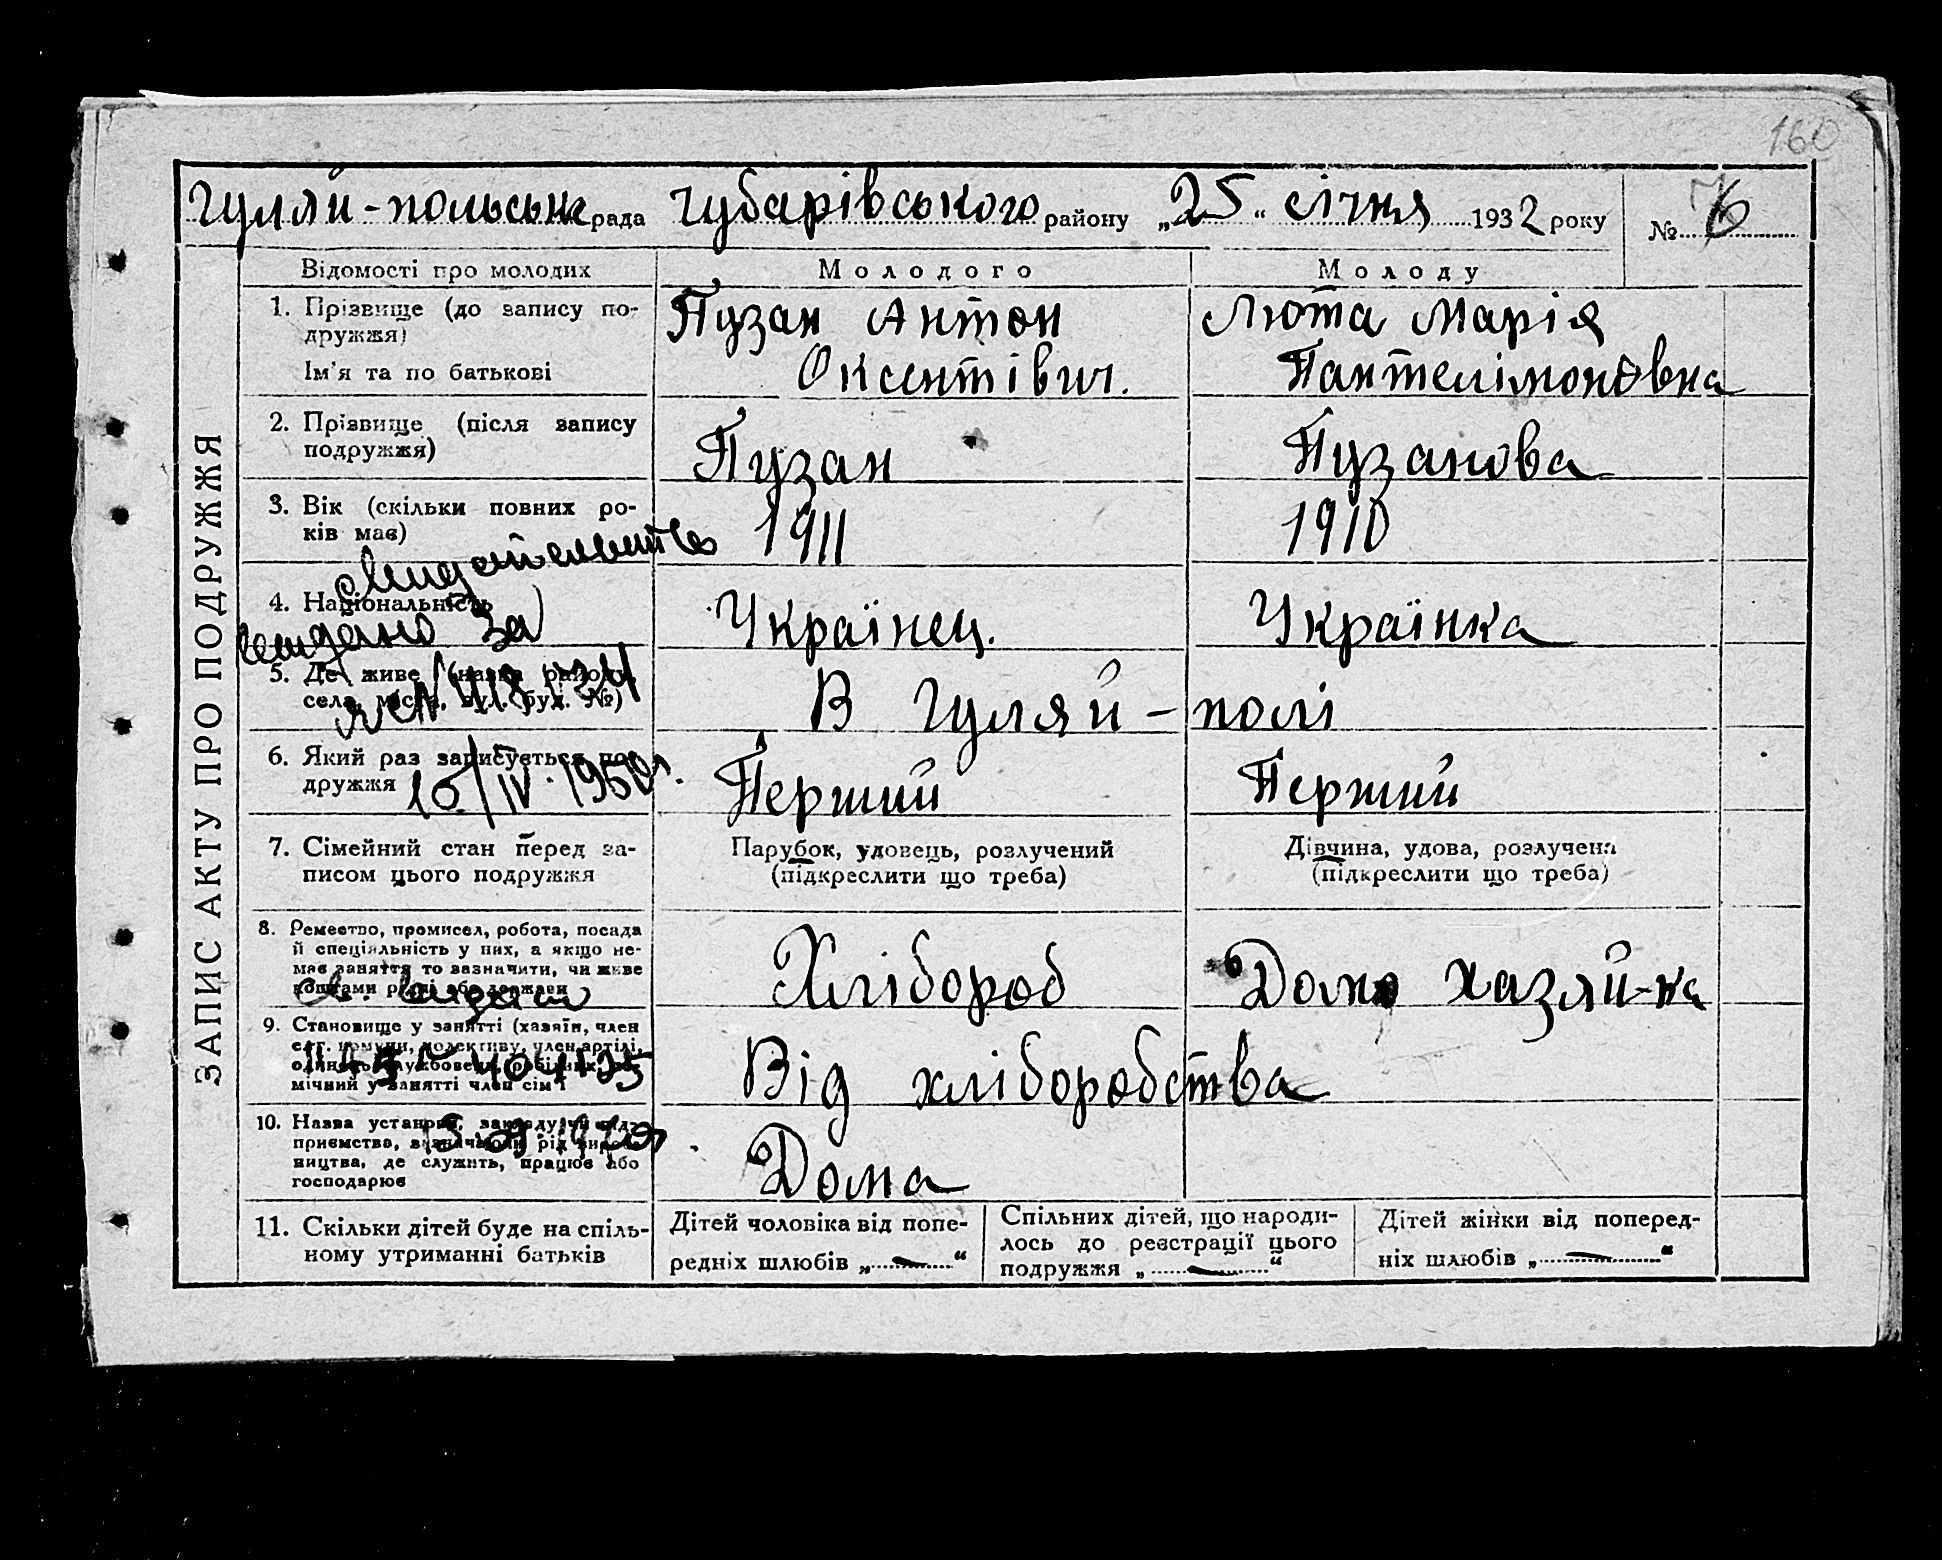 160
Гуляй-польська рада Губарівського району „25“ січня 1932 року № 6
ЗАПИС АКТУ ПРО ПОДРУЖЖЯ
Відомості про молодих
Молодого
Молоду
1. Прізвище (до запису по-
дружжя)
Ім'я та по батькові
Пузан Антон
Оксентівич.
Люта Марія
Пантелімоновна
2. Прізвище (після запису
подружжя)
Пузан
Пузанова
3. Вік (скільки повних ро-
ків має)
1911
1910
4. Національність
Українец.
Українка
5. Де живе (назва району,
села, міста, вул. буд. №)
В Гуляй-полі
6. Який раз записується по-
дружжя
Перший
Перший
7. Сімейний стан перед за-
писом цього подружжя
Парубок, удовець, розлучений
(підкреслити що треба)
Дівчина, удова, розлучена
(підкреслити що треба)
8. Ремество, промисел, робота, посада
й спеціяльність у них, а якщо не-
має заняття то зазначити, чи живе
коштами рідні або держави
Хлібороб
Дома хазяй-ка
9. Становище у занятті (хазяїн, член
мічний у занятті член сім'ї
Від хліборобства
10. Назва установи, закладу чи під-
приємства, визначаючи рід вироб-
ництва, де служить, працює або
господарює
Дома
11. Скільки дітей буде на спіль-
ному утриманні батьків
Дітей чоловіка від попе-
редніх шлюбів „—“
Спільних дітей, що народи-
лось до реєстрації цього
подружжя „—“
Дітей жінки від поперед-
ніх шлюбів „—“
свидетельство
выдано за
10/IV.1950г.